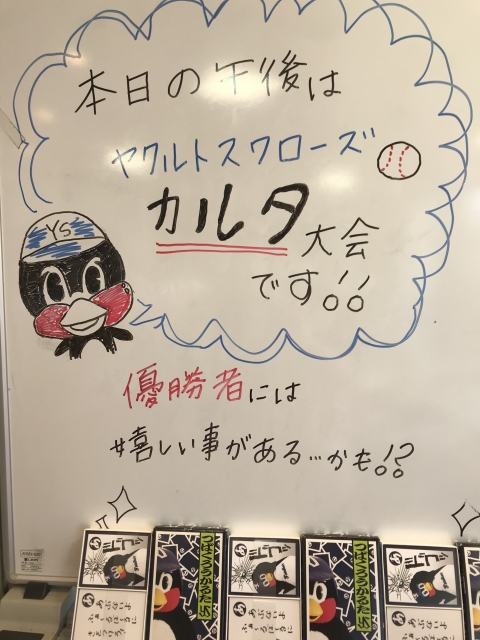 本日の午後は
ヤクルトスワローズ
カルタ大会
です!!
YS
優勝者には
#嬉しい事がある…かも!?
つば九郎かるた
つば九郎かるた